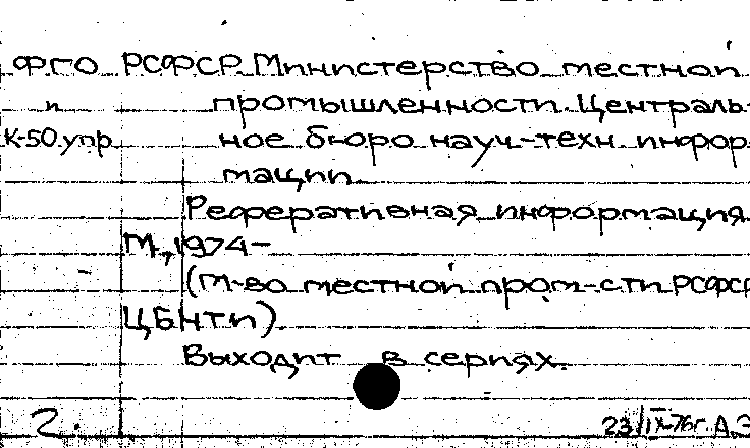 ФГО РСФСР. Министерство местной
п промышленности. Централь-
К-50 упр. ное бюро науч.-техн. инфор-
мации.
Реферативная информация.
М., 1974-
(М-во местной пром-сти РСФСР
ЦБНТИ).
Выходит в сериях.
2. 23/IX-76г.